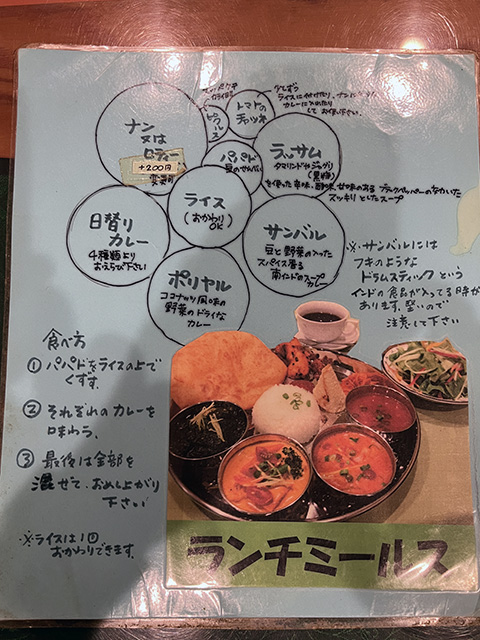 少しずつ
ライスに付けたり、ナンにつけたり
カレーに入れたり
してお使い下さい。
ピクルス
トマトの
チャツネ
ナン
又は
ロティー
+200円
変更可
パパド
豆のせんべい
ラッサム
タマリンドやジャグリ
(黒糖)
を使った辛味、酸味、甘味のある ブラックペッパーのきいた
スッキリとしたスープ
ライス
(おかわり)
OK
日替り
カレー
4種類より
おえらび下さい
サンバル
豆と野菜の入った
スパイス香る
南インドのスープ
カレー
ポリヤル
ココナッツ風味の
野菜のドライな
カレー
※サンバルには
フキのような
ドラムスティックという
インドの食品が入ってる時が
あります。堅いので
注意して下さい
食べ方
① パパドをライスの上で
くずす。
② それぞれのカレーを
味わう。
③ 最後は全部を
混ぜて、おめし上がり
下さい
※ライスは1回
おかわりできます。
ランチミールス